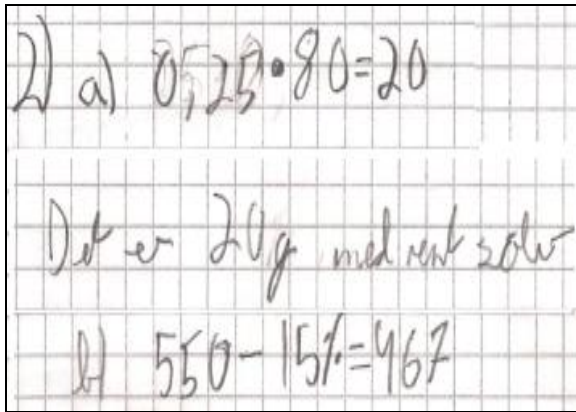 2) a) 0,25•80=20
Det er 20g med rent sølv
b) 550-15%=467